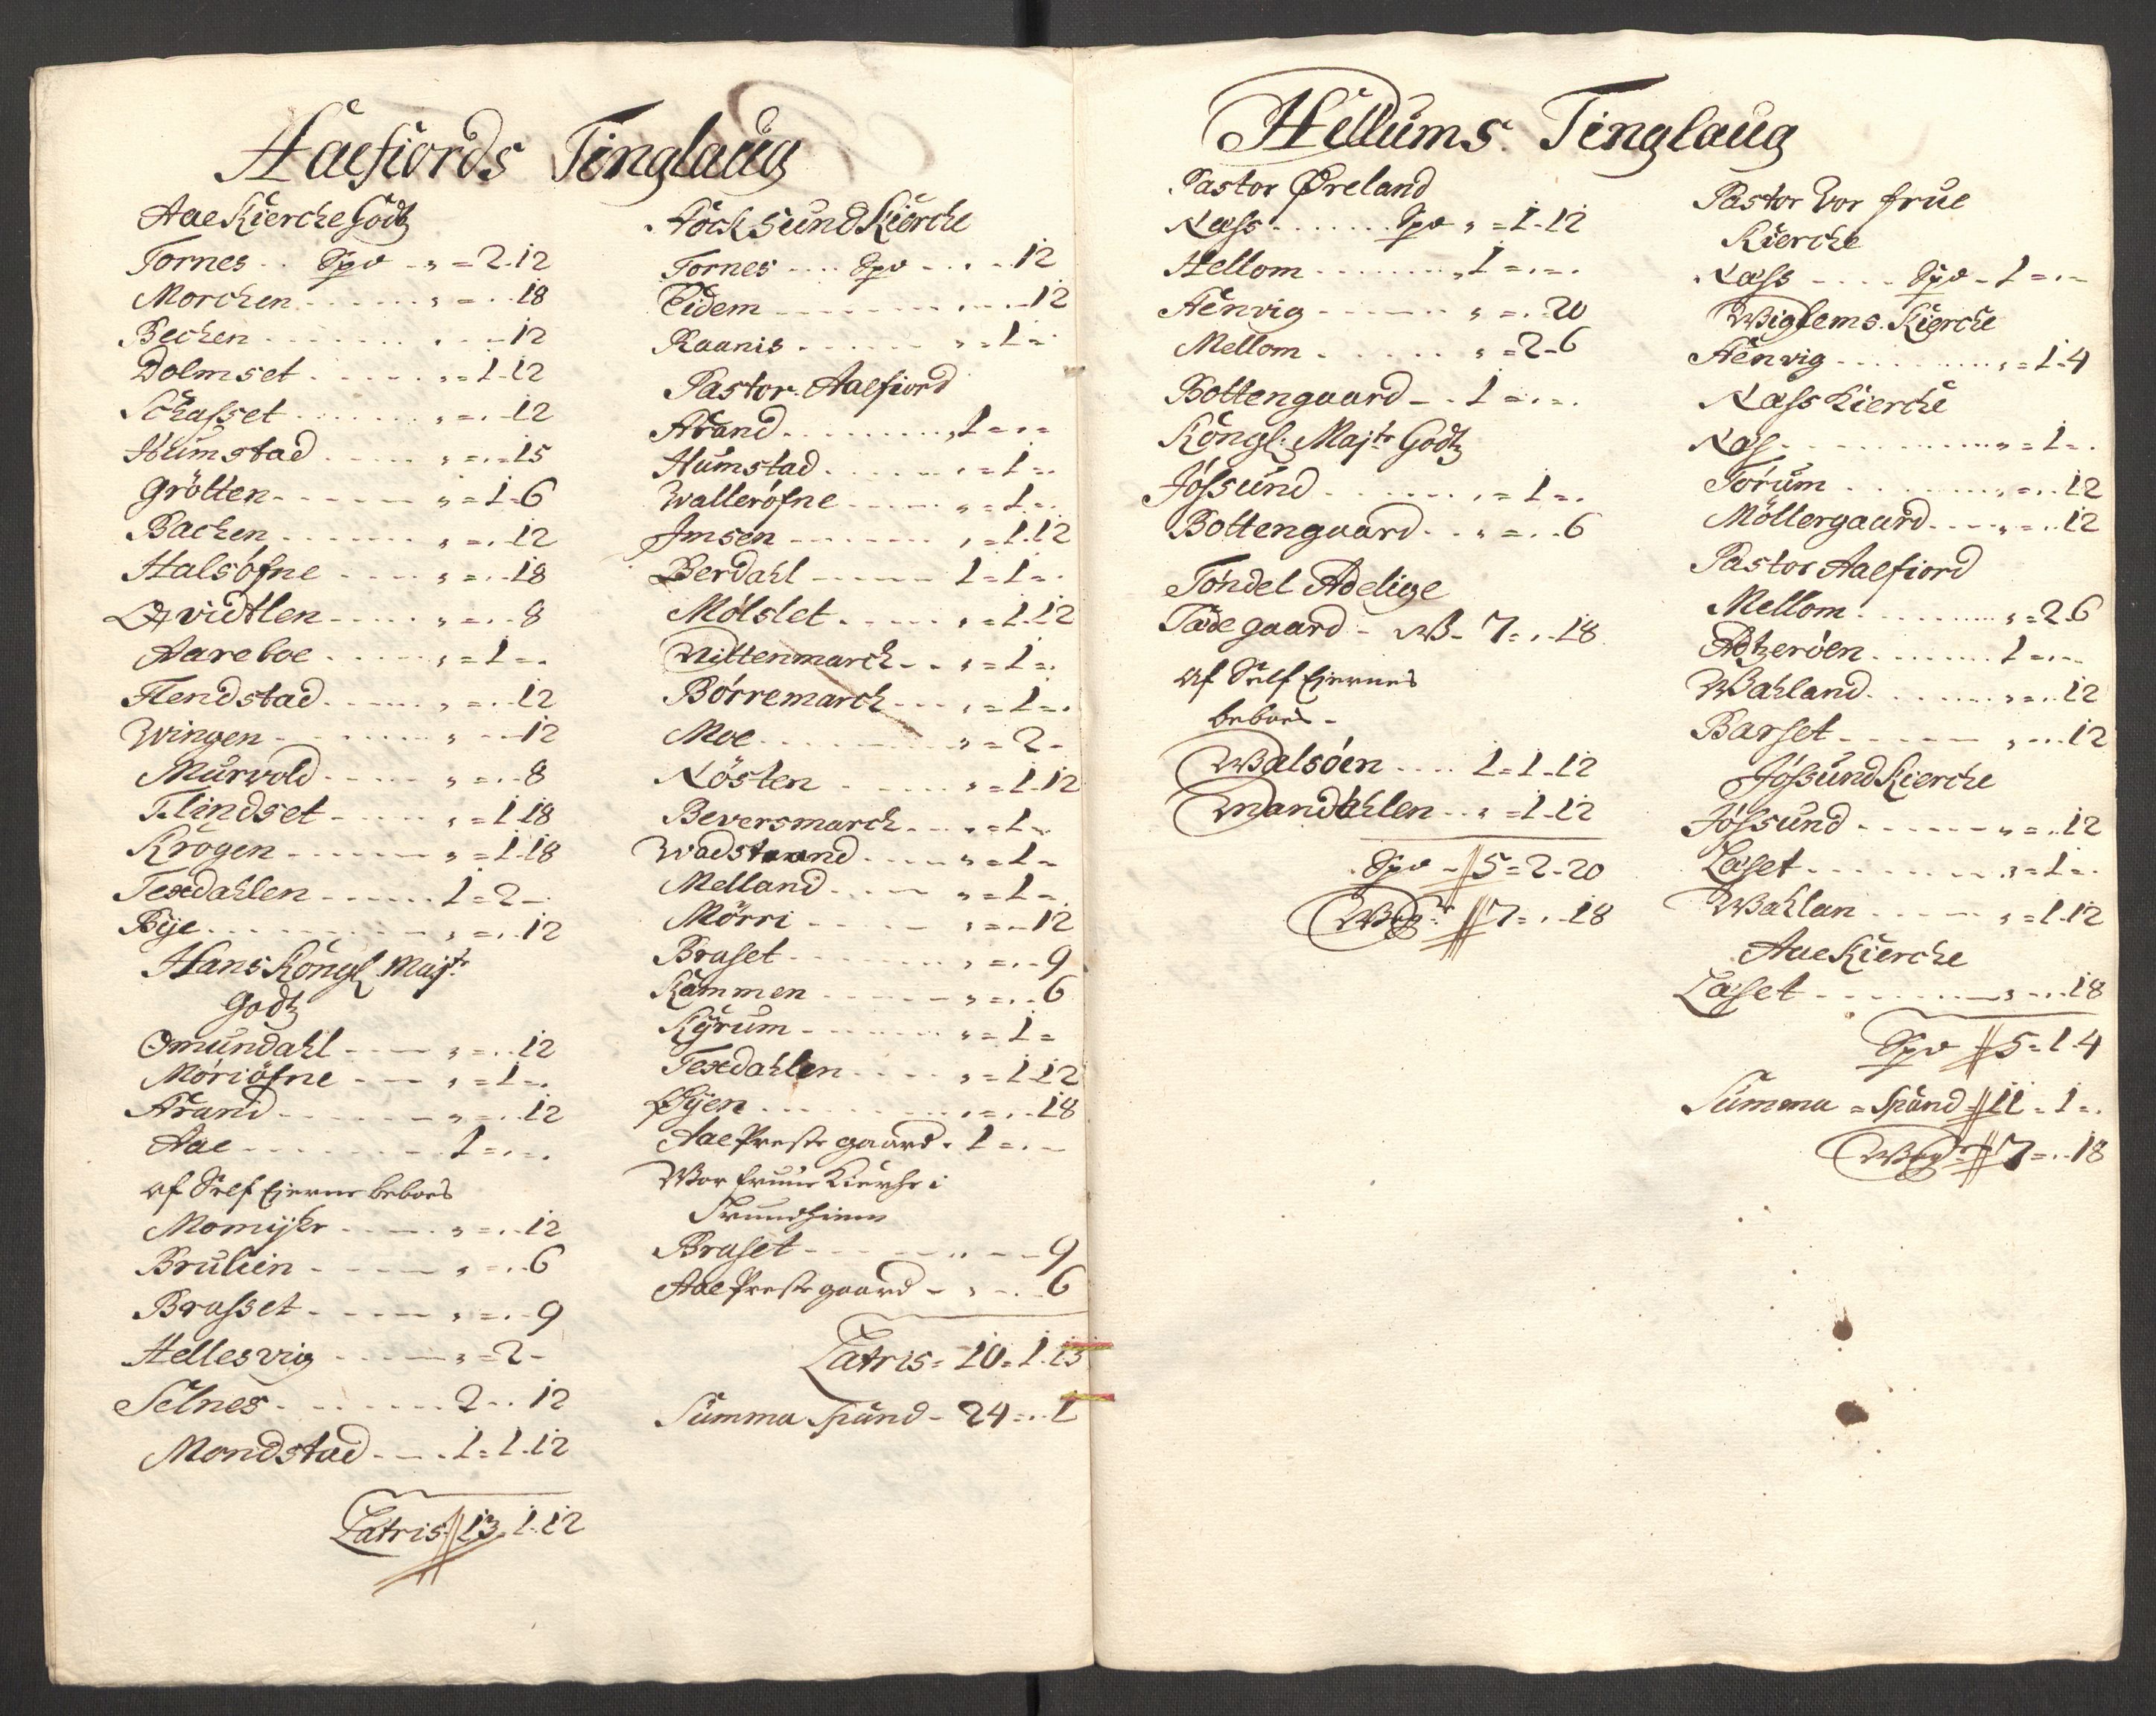 Aaefiords Tinglaug
Aae Kierche Godtz
Tornes . . Spd - „ = 2-12
Morchen . . . . „ = . . 18
Bechen . . . . . . . - 12
Dolmset . . . . „ = 1-12
Schasset . . . . „ = . - 12
Humstad . . . . „ = . = 15
Grötten - - - - „ = 1-6
Bachen . . . . „ = . - 12
Halsöfne . . . . „ = . - 18
Qvidtlen - - - - „ = . - 8
Aareboe . . . . „ = 1 = .
Flendstad . . . . „ = . - 12
Wingen - . . . . „ - - - 12
Murvold . . . . „ = . - 8
Flindset - - - - „ = 1-18
Krogen - - - - „ = 1-18
Texdahlen - - - - 1 = 2 -
Bye . . . . . „ = . - 12
Hans Kongl Majts
Godtz
Omundahl - - - „ = . . 12
Móriöfne - - - „ = 1 - .
Årand - - - - „ = . . 12
Aae - - - - - 1 = . - .
af Self Eierne beboes
Momyhr . . . . „ = . - 12
Brulien - - - - „ = . - 6
Brasset - - - - „ = . - 9
Hellesvig - - - - „ = 2 -
Selnes - . . . . 2 - . 12
Mondstad - - - . 1 = 1-12
Latris 13. 1-12
Höcksund Kierche
Tornes - - . . Spd - - . - 12
Eidem . . . . . . - 12
Raanis . . . . . „ = 1 = .
Pastor Aaefiord
Årand . . . . . „ 1 = . =
Humstad . . . . „ = 1 = .
Walleröfne - - - - „ = 1 - .
Imsen - - - - „ = 1-12
Berdahl - - - - 1 = 1 = .
Mólslet . . . . „ = 1-12
Nittenmarch - . „ = 1 = .
Börremarch - - - „ = 1 = .
Moe . . . . . „ = 2 -
Nösten . . . . „ = 1-12
Beversmarch . . . „ = 1 - .
Wadstrand . . . . „ = 1 -
Melland . . . - „ = 1 - .
Mörri - - - - „ = - 12
Braset - - - - „ = . - 9
Kammen - - - - „ = . - 6
Kÿrum - - - - „ = 1 =
Texdahlen . . . . „ = 1-12
Øÿen . . . . . „ = . - 18
Aae Preste gaard . 1 = . -
Wor fruue Kierche i
Trundhiem
Braset - - - - „ - - 9
Aae Preste gaard - „ - . - 6
Latris = 10 = 1-15
Summa Spand - 24 = . . 1
Hellums Tinglaug
Pastor Øreland
Næss . . . . . Spd „ = 1-12
Hellom . . . . . „ 1 = . - .
Henvig - - - - „ = . - 20
Mellom . . . . „ = 2-6
Bottengaard - . 1 = . - .
Kongl. Majts Godtz
Jössund . . . . „ = 1 = .
Bottengaard . . „ = . - 6
Tóndel Adelige
Tæde gaard - W - 7 = . - 18
af Self Eiernes
beboes -
Walsóen . . . . 1 = 1-12
Mandahlen . . „ = 1-12
Spd - 5 = 2-20
Wg: 7 = . - 18
Pastor Vor frue
Kierche
Næss . . . . Spd - 1 = . -
Wiglems Kierche
Henvig . . . . „ = 1-4
Næss Kierche
Næs . . . . . „ = 1 - .
Tórum . . . . „ = . - 12
Möllergaard . . . „ = . - 12
Pastor Aaefiord
Mellom . . . . „ = 2-6
Adtzeröen . . . . 1 = . - -
Wahland . . . . „ = . - 12
Barset - - - - „ - . - 12
Jössund Kierche
Jössund - - - - „ = . - 12
Laset . . . . . „ = 1 - .
Wahlan . . . . „ = 1-12
Aae Kierche
Laset - - - - „ - . - 18
Spd 5 = 1-4
Summa = Spand 11 = 1 = .
Wg: 7 = . - 18